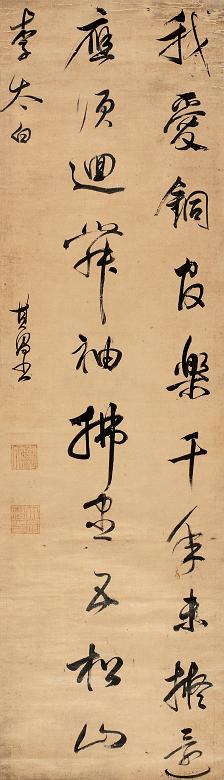 我愛銅官樂千年未擬還
應須迴舞袖拂盡五松山
李太白
其昌書